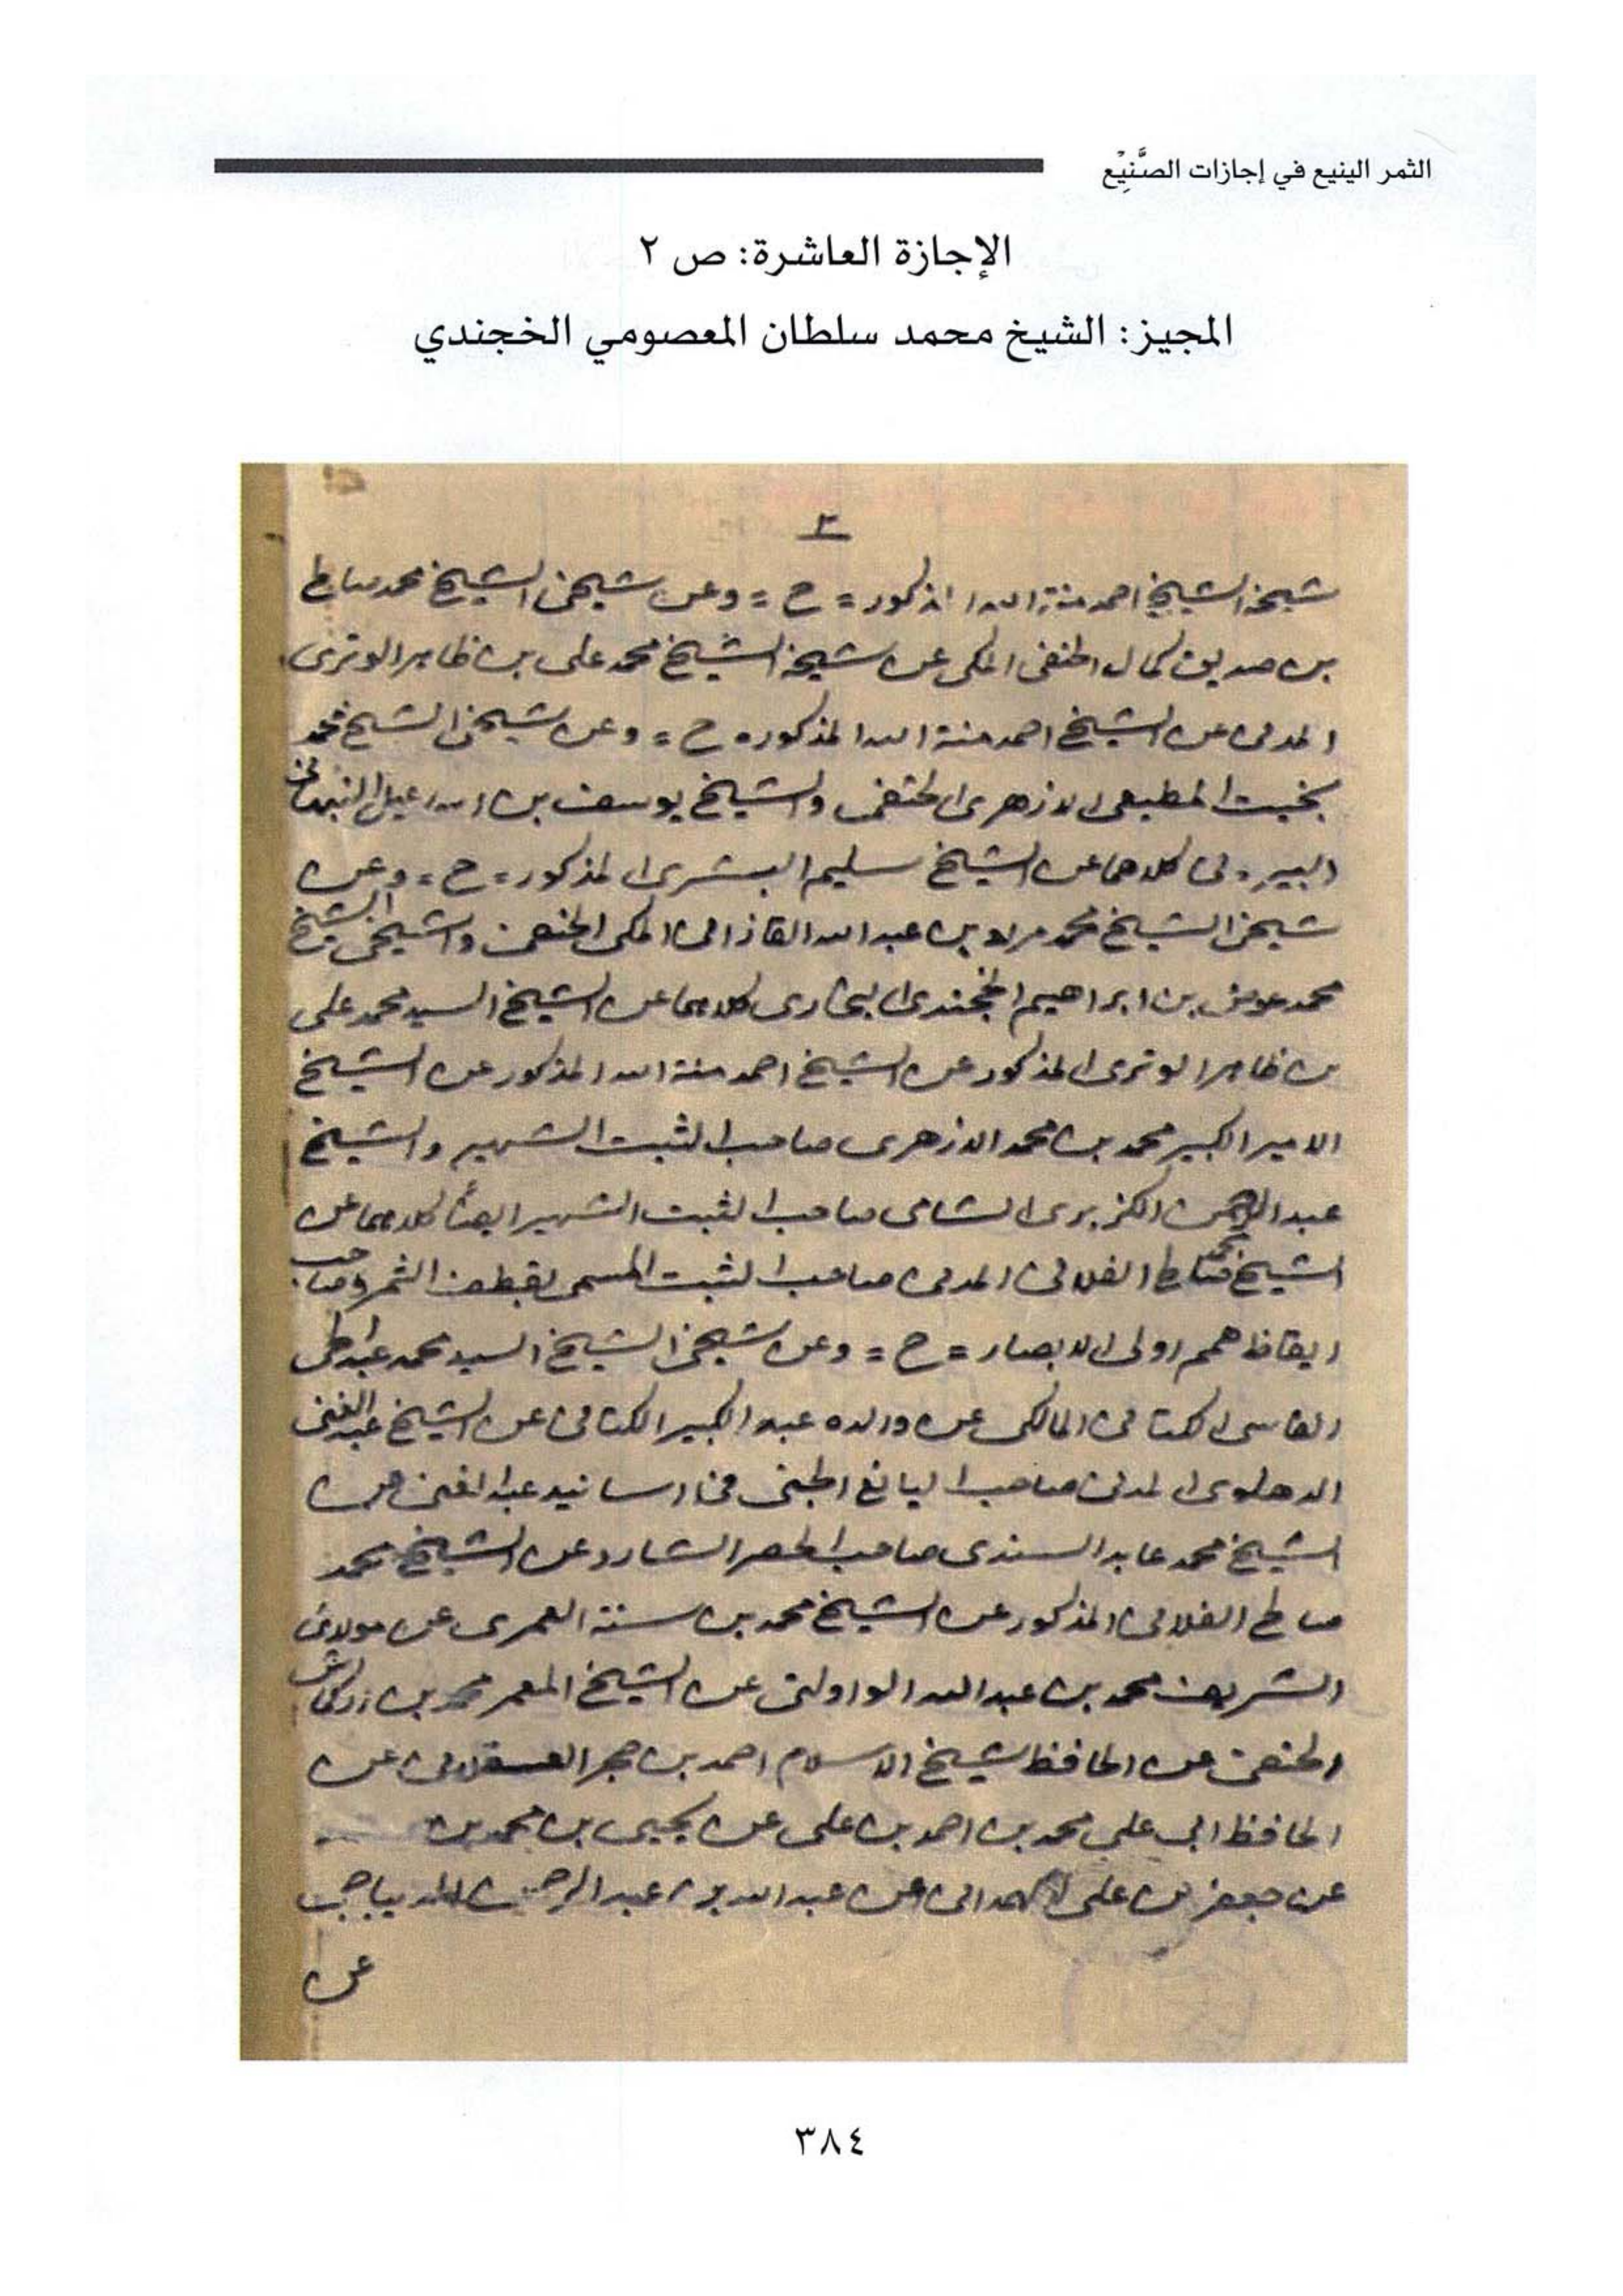 الثمر الينيع في إجازات الصَّنِيْع
الإجازة العاشرة: ص ٢
المجيز: الشيخ محمد سلطان المعصومي الخجندي
٢
شيخه الشيخ احمد منة الله المذكور = ح = وعن شيخي الشيخ محمد صالح
بن صديق كمال الحنفي المكي عن شيخه الشيخ محمد علي بن ظاهر الوتري
المدني عن الشيخ احمد منة الله المذكور ه ح = وعن شيخي الشيخ محمد
بخيت المطيعي الازهري الحنفي والشيخ يوسف بن اسماعيل النبهاني
البيروتي كلاهما عن الشيخ سليم البشري المذكور = ح = وعن
شيخي الشيخ محمد مراد بن عبد الله القازاني المكي الحنفي وشيخي الشيخ
محمد عوض بن ابراهيم الخجندي البخاري كلاهما عن الشيخ السيد محمد علي
بن ظاهر الوتري المذكور عن الشيخ احمد منة الله المذكور عن الشيخ
الامير الكبير محمد بن محمد الازهري صاحب الثبت الشهير والشيخ
عبد الرحمن الكزبري الشامي صاحب الثبت الشهير ايضا كلاهما عن
الشيخ محمد صالح الفلاني المدني صاحب الثبت المسمى بقطف الثمر وصاحب
ايقاظ همم اولي الابصار = ح = وعن شيخي الشيخ السيد محمد عبد الحي
الفاسي الكتاني المالكي عن والده عبد الكبير الكتاني عن الشيخ عبد الغني
الدهلوي المدني صاحب اليانع الجني في اسانيد عبد الغني عن
الشيخ محمد عابد السندي صاحب الحصر الشارد عن الشيخ محمد
صالح الفلاني المذكور عن الشيخ محمد بن سنة العمري عن مولاي
الشريف محمد بن عبد الله الواولتي عن الشيخ المعمر محمد بن اركماش
الحنفي عن الحافظ شيخ الاسلام احمد بن حجر العسقلاني عن
الحافظ ابي علي محمد بن احمد بن علي عن يحيى بن محمد بن
عن جعفر بن علي الهمداني عن عبد الله بن عبد الرحمن الديباجي
عن
٣٨٤